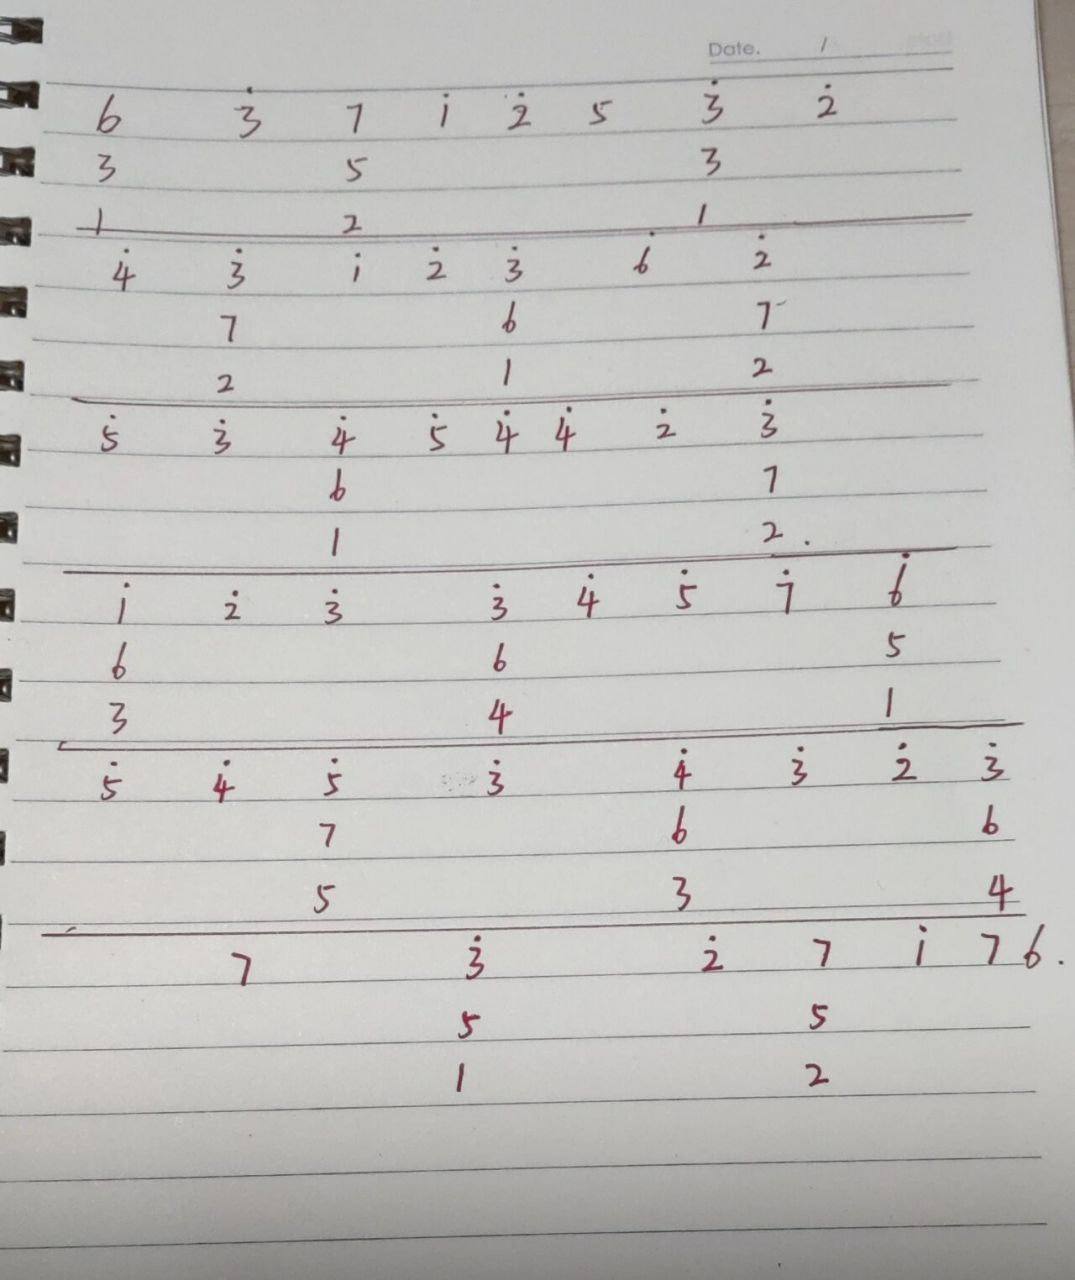 Date. /
6 3̇ 7 1̇ 2̇ 5 3̇ 2̇
3 5 3
1 2 1
4̇ 3̇ 1̇ 2̇ 3̇ 6̇ 2̇
7 6 7
2 1 2
5̇ 3̇ 4̇ 5̇ 4̇ 4̇ 2̇ 3̇
6 7
1 2.
1̇ 2̇ 3̇ 3̇ 4̇ 5̇ 7̇ 6̇
6 6 5
3 4 1
5̇ 4̇ 5̇ 3̇ 4̇ 3̇ 2̇ 3̇
7 6 6
5 3 4
7 3̇ 2̇ 7 1̇ 7 6.
5 5
1 2